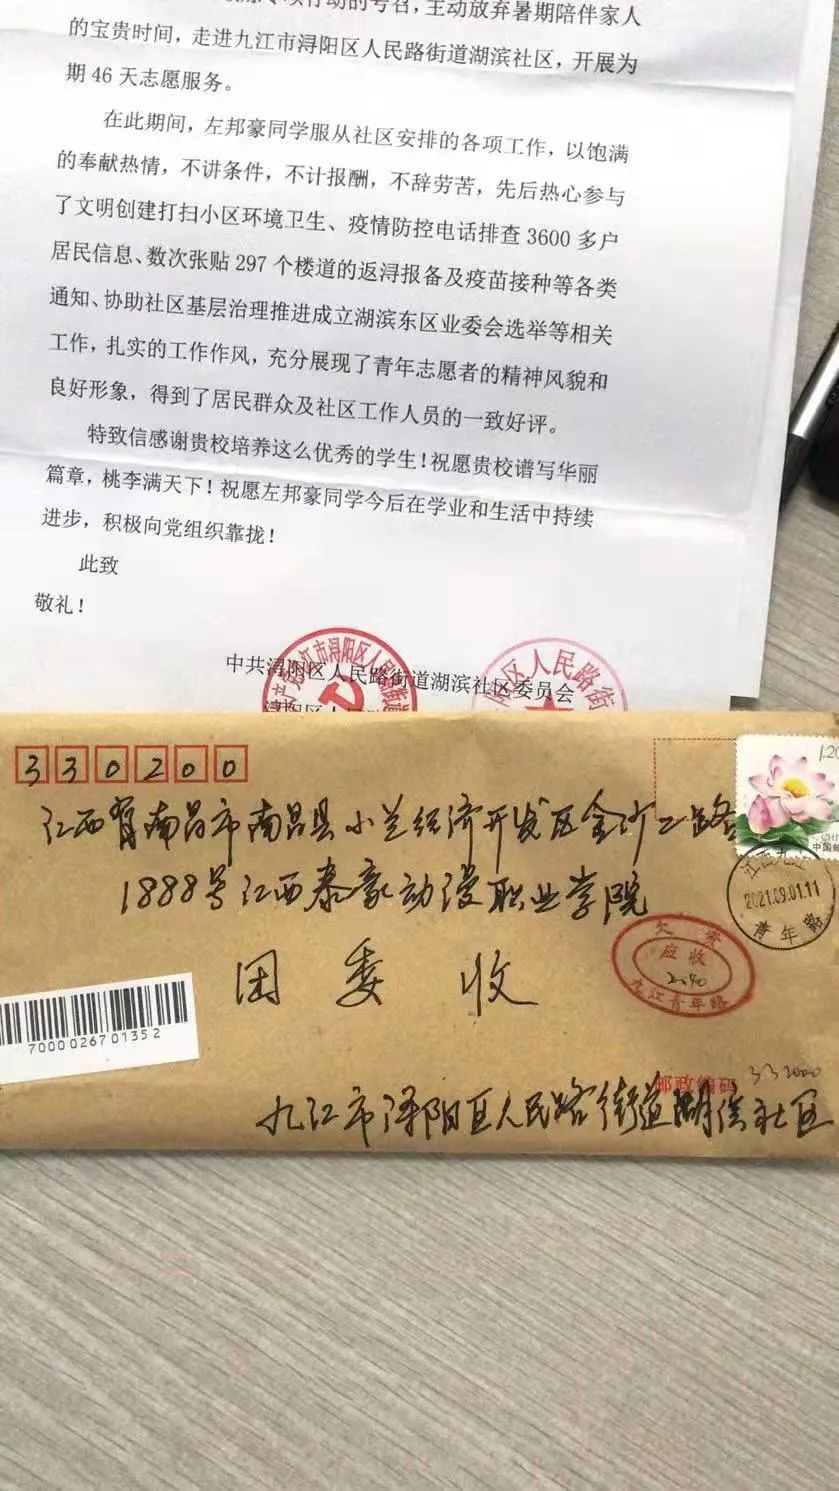 行动的号召，主动放弃暑期陪伴家人
的宝贵时间，走进九江市浔阳区人民路街道湖滨社区，开展为
期46天志愿服务。
在此期间，左邦豪同学服从社区安排的各项工作，以饱满
的奉献热情，不讲条件，不计报酬，不辞劳苦，先后热心参与
了文明创建打扫小区环境卫生、疫情防控电话排查3600多户
居民信息、数次张贴297个楼道的返浔报备及疫苗接种等各类
通知、协助社区基层治理推进成立湖滨东区业委会选举等相关
工作，扎实的工作作风，充分展现了青年志愿者的精神风貌和
良好形象，得到了居民群众及社区工作人员的一致好评。
特致信感谢贵校培养这么优秀的学生！祝愿贵校谱写华丽
篇章，桃李满天下！祝愿左邦豪同学今后在学业和生活中持续
进步，积极向党组织靠拢！
此致
敬礼！
中共浔阳区人民路街道湖滨社区委员会
江市浔阳区人民路街道
区人民路街
330200
1.20
中国邮
江西省南昌市南昌县小兰经济开发区金沙二路
1888号江西泰豪动漫职业学院
江西九江
2021.09.01.11
青年路
团委 收
欠资
应收
2.40
九江青年路
7000026701352
邮政编码 332000
九江市浔阳区人民路街道湖滨社区